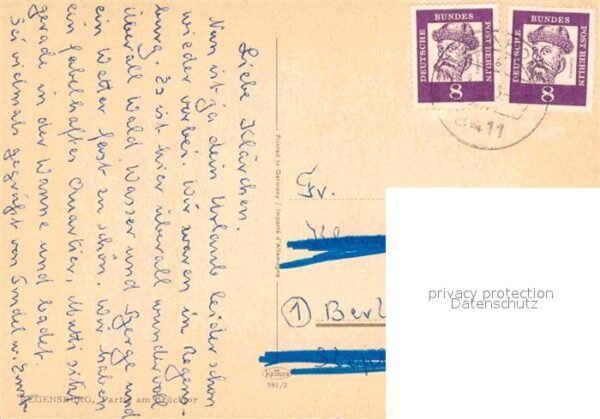 Liebe Klärchen.
Nun ist ja dein Urlaub leider schon
wieder vorbei. Wir waren in Regens-
burg. Es ist hier überall wundervoll
überall Wald Wasser und Berge und
ein Wetter fast zu schön. Wir haben
ein fabelhaftes Quartier, Mutti sitzt
gerade in der Wanne und badet
Sei vielmals gegrüßt von u. Ernst
DEUTSCHE
BUNDES
POST BERLIN
8
DEUTSCHE
BUNDES
POST BERLIN
8
Printed in Germany / Imprimé d'Allemagne
Fr.
① Berl
privacy protection
Datenschutz
981/2
REGENSBURG, Partie am Brücktor